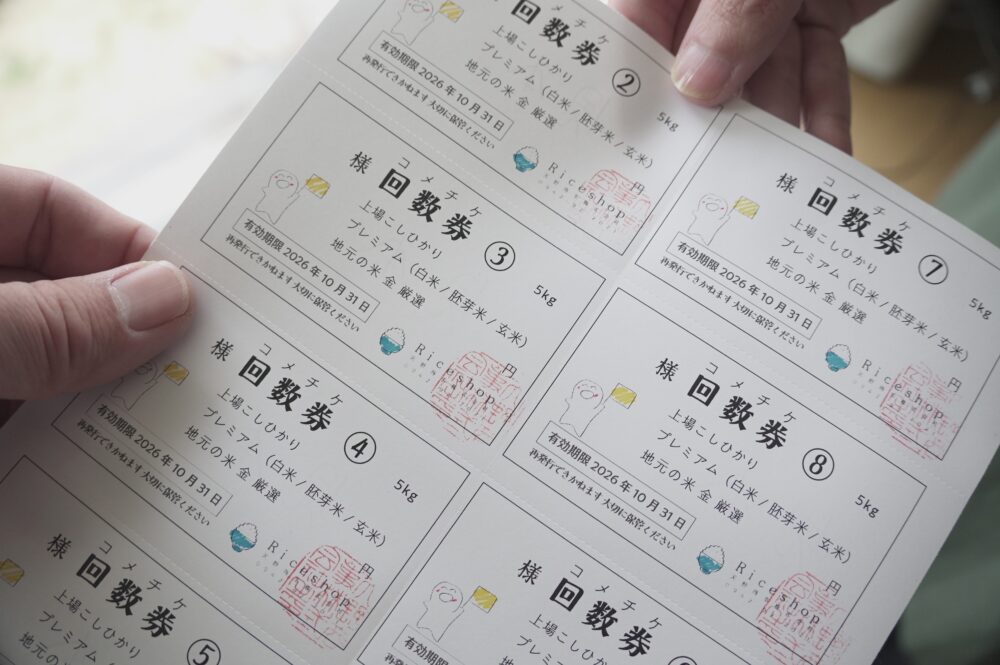 コメチケ
回数券 ②
上場こしひかり 5kg
プレミアム（白米/胚芽米/玄米）
地元の米 金 厳選
有効期限 2026年10月31日
再発行できかねます 大切に保管ください
円
Riceshop
コメチケ
様 回数券 ③
上場こしひかり 5kg
プレミアム（白米/胚芽米/玄米）
地元の米 金 厳選
有効期限 2026年10月31日
再発行できかねます 大切に保管ください
円
Riceshop
コメチケ
様 回数券 ④
上場こしひかり 5kg
プレミアム（白米/胚芽米/玄米）
地元の米 金 厳選
有効期限 2026年10月31日
再発行できかねます 大切に保管ください
円
Riceshop
コメチケ
様 回数券 ⑤
上場こしひかり
プレミアム
コメチケ
様 回数券 ⑦
上場こしひかり 5kg
プレミアム（白米/胚芽米/玄米）
地元の米 金 厳選
有効期限 2026年10月31日
再発行できかねます 大切に保管ください
円
Riceshop
コメチケ
様 回数券 ⑧
上場こしひかり 5kg
プレミアム（白米/胚芽米/玄米）
地元の米 金 厳選
有効期限 2026年10月31日
再発行できかねます 大切に保管ください
円
Riceshop
コメチケ
様 回数券
上場こしひかり
プレミアム
地元の米
有効期限